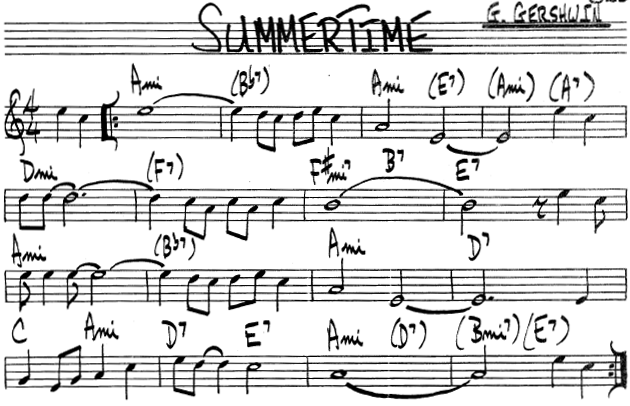 SUMMERTIME
G. GERSHWIN
4
4
Ami (Bb7) Ami (E7) (Ami) (A7)
Dmi (F7) F#mi7 B7 E7
Ami (Bb7) Ami D7
C Ami D7 E7 Ami (D7) (Bmi7) (E7)